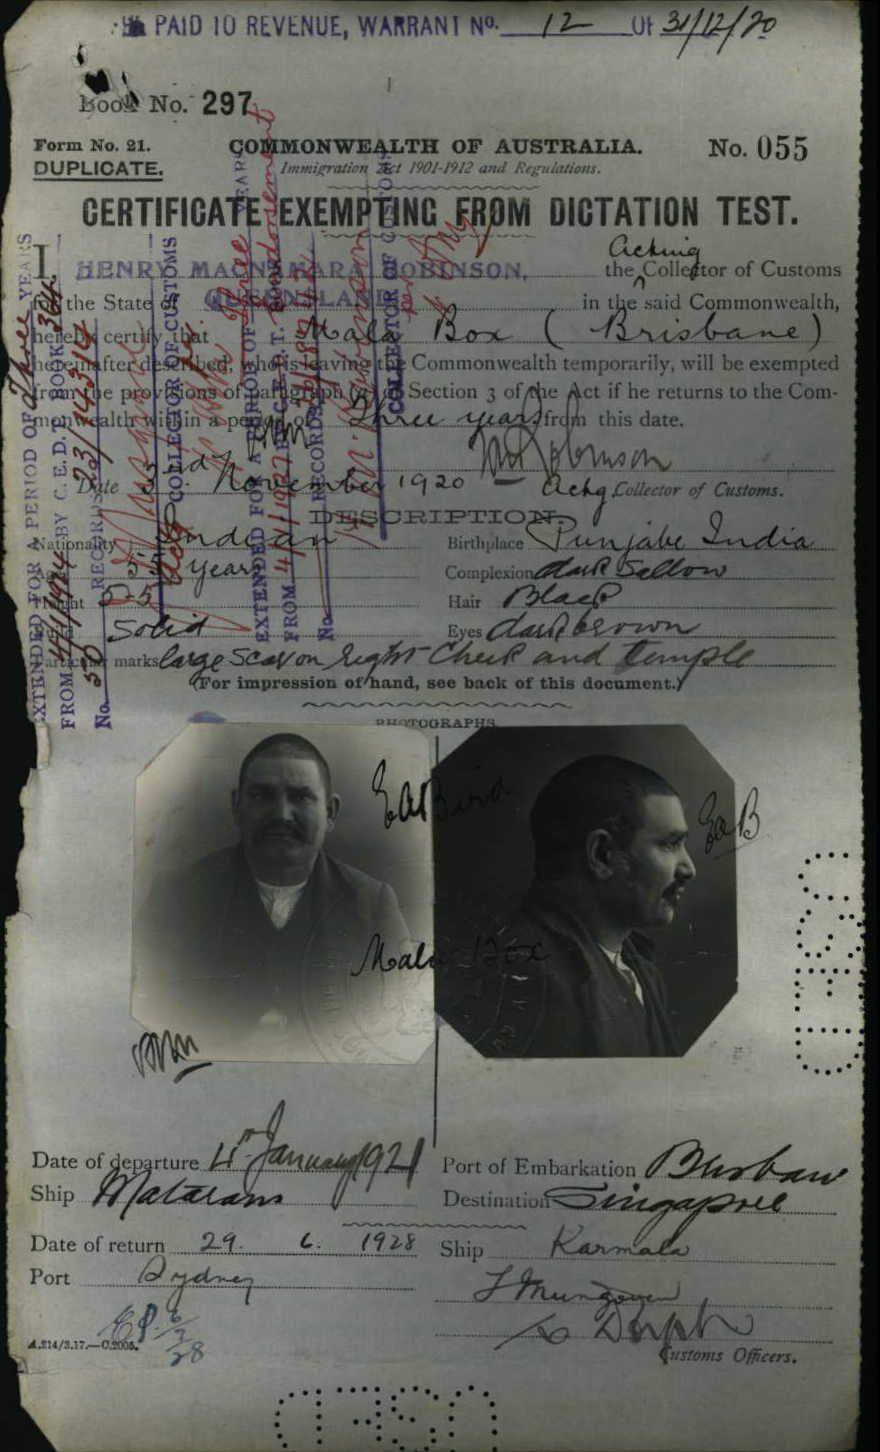 PAID TO REVENUE, WARRANT No. 12 OF 31/12/20
Book No. 297
Form No. 21.
COMMONWEALTH OF AUSTRALIA.
No. 055
DUPLICATE.
Immigration Act 1901-1912 and Regulations.
CERTIFICATE EXEMPTING FROM DICTATION TEST.
I, HENRY MACNAMARA ROBINSON, the Acting Collector of Customs
for the State of QUEENSLAND in the said Commonwealth,
hereby certify that Mala Box (Brisbane)
hereinafter described, who is leaving the Commonwealth temporarily, will be exempted
from the provisions of paragraph (a) of Section 3 of the Act if he returns to the Com-
monwealth within a period of Three years from this date.
HM Robinson
Date 3rd November 1920 Actg Collector of Customs.
DESCRIPTION.
Nationality Indian Birthplace Punjabe India
Age years Complexion dark Sallow
Height 5-5 Hair Black
Solid Eyes dark brown
Particular marks large scar on right Cheek and temple
(For impression of hand, see back of this document.)
PHOTOGRAPHS.
EXTENDED FOR A PERIOD OF Three YEARS
FROM 4/1/1924 BY C.E.D.T. BOOK 364
No. 50 RECORDS 23/14314
COLLECTOR OF CUSTOMS
EXTENDED FOR A PERIOD OF Three YEARS
FROM 4/1/1927 BY C.E.D.T. Endorsement
No. RECORDS
COLLECTOR OF CUSTOMS
EA Bird
EaB
Mala Box
HMR
Date of departure 4th January 1921 Port of Embarkation Brisbane
Ship Mataram Destination Singapore
Date of return 29. 6. 1928 Ship Karmala
Port Sydney
A.214/3.17.—C.2005.
Customs Officers.
USED
USED